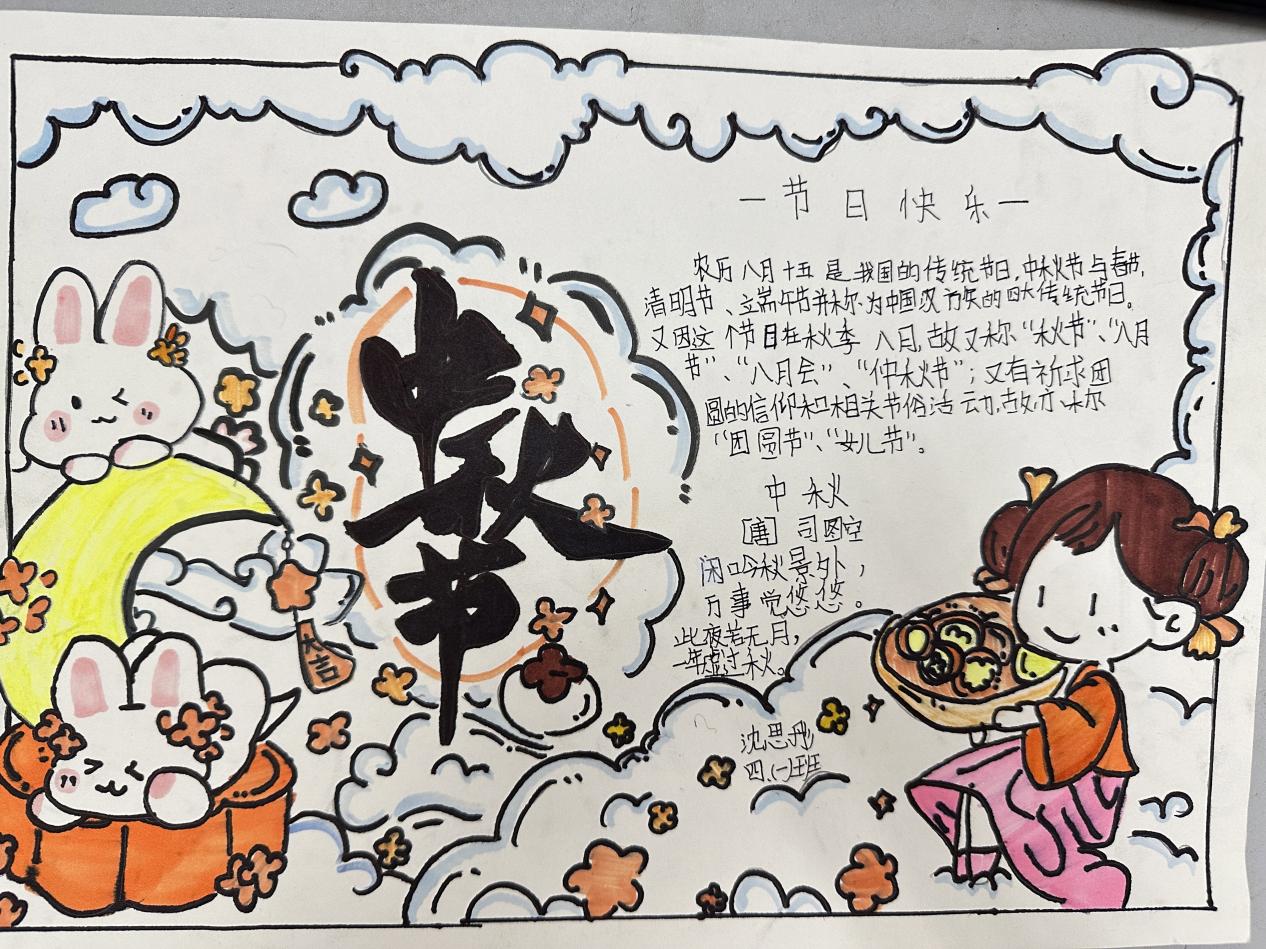 中秋节
吉
一节日快乐一
农历八月十五是我国的传统节日,中秋节与春节,
清明节、端午节并称为中国汉族的四大传统节日。
又因这个节日在秋季八月,故又称“秋节”、“八月
节”、“八月会”、“仲秋节”;又有祈求团
圆的信仰和相关节俗活动,故亦称
“团圆节”、“女儿节”。
中秋
[唐] 司图空
闲吟秋景外,
万事觉悠悠。
此夜若无月,
一年虚过秋。
沈思彤
四.(一)班